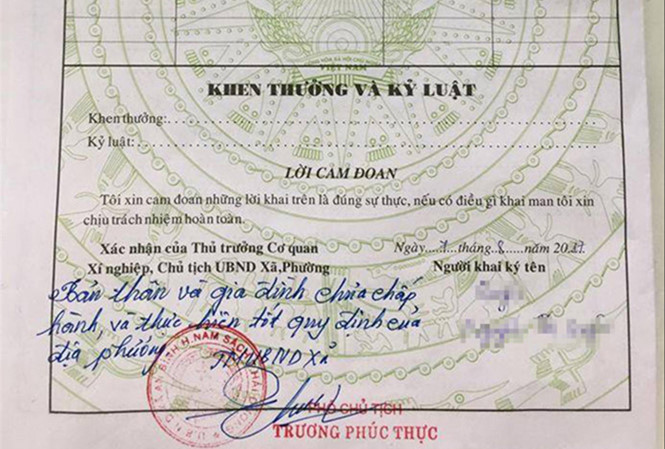 VIỆT NAM
KHEN THƯỞNG VÀ KỶ LUẬT
Khen thưởng:
Kỷ luật:
LỜI CAM ĐOAN
Tôi xin cam đoan những lời khai trên là đúng sự thực, nếu có điều gì khai man tôi xin
chịu trách nhiệm hoàn toàn.
Xác nhận của Thủ trưởng Cơ quan
Xí nghiệp, Chủ tịch UBND Xã,Phường
Ngày....1...tháng...8.....năm 2017
Người khai ký tên
Bản thân và gia đình chưa chấp
hành, và thực hiện tốt quy định của
địa phương.
TM UBND Xã
U.B.N.D XÃ AN BÌNH H.NAM SÁCH
PHÓ CHỦ TỊCH
TRƯƠNG PHÚC THỰC